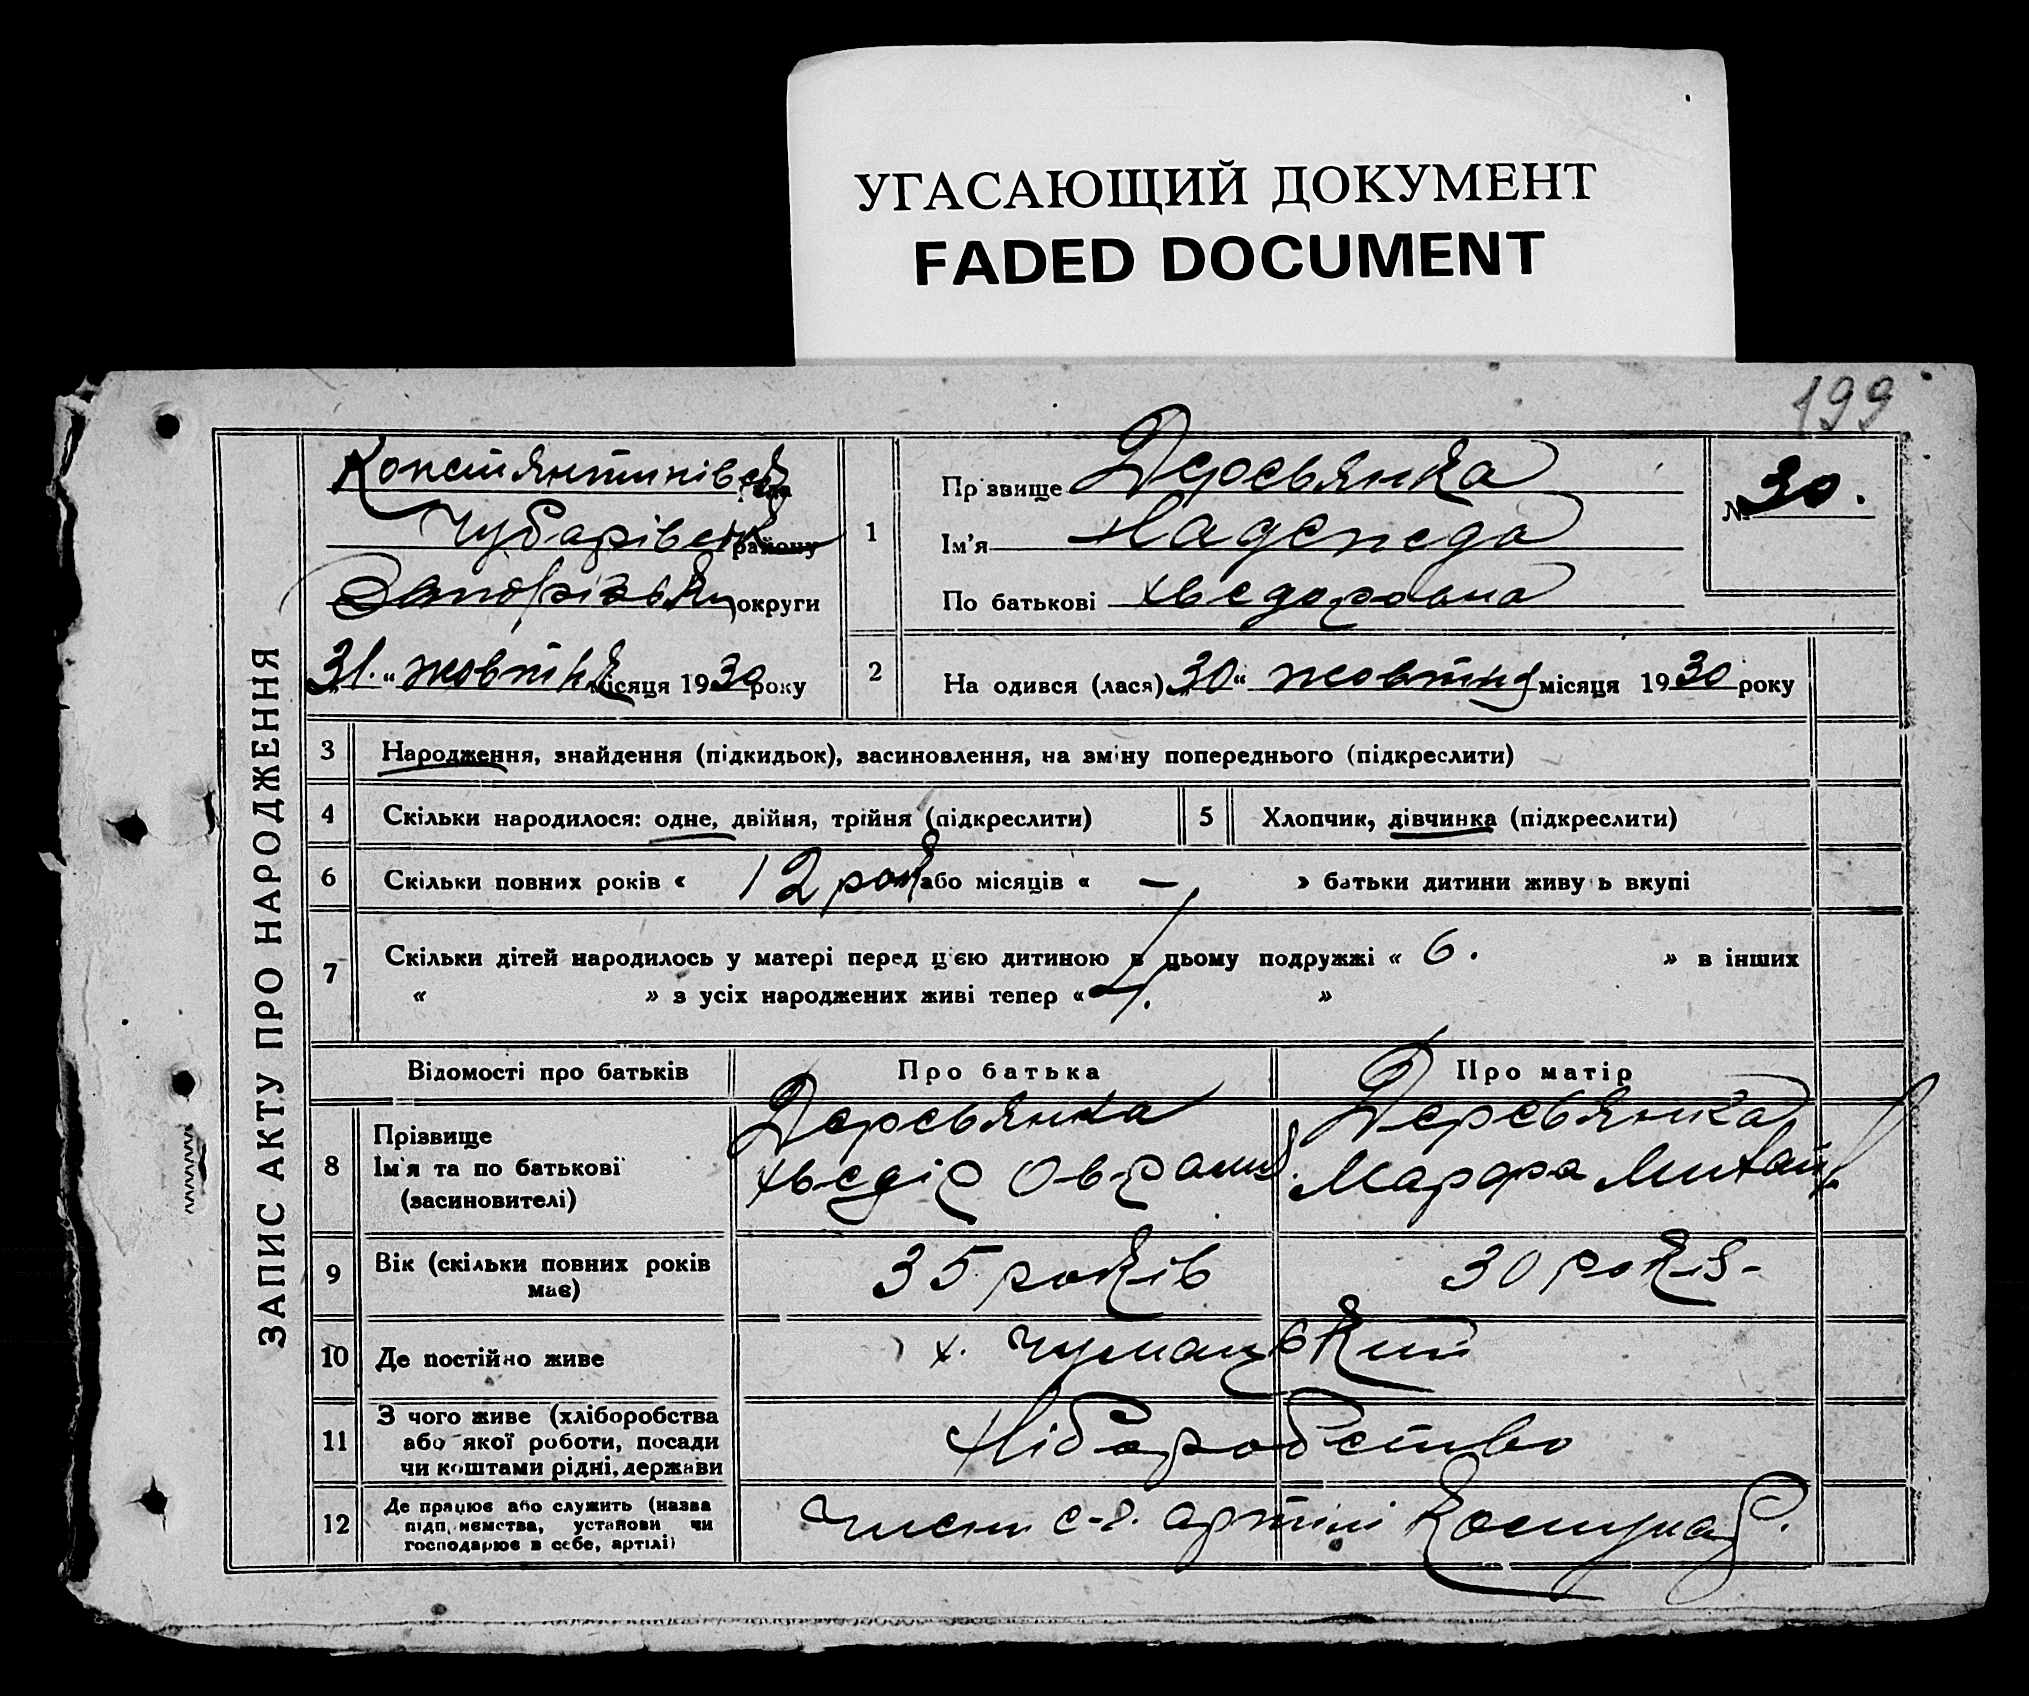 УГАСАЮЩИЙ ДОКУМЕНТ
FADED DOCUMENT
199
ЗАПИС АКТУ ПРО НАРОДЖЕННЯ
Констянтинівськ
Чубарівськ району
Запорізьк округи
31 " жовтня місяця 1930 року
1
Прізвище Деревьянка
Ім'я Надежда
По батькові Хведоровна
№ 30.
2
На одився (лася) 30 " жовтня місяця 1930 року
3 Народження, знайдення (підкидьок), засиновлення, на зміну попереднього (підкреслити)
4 Скільки народилося: одне, двійня, трійня (підкреслити) 5 Хлопчик, дівчинка (підкреслити)
6 Скільки повних років « 12 рок або місяців « – » батьки дитини живу ь вкупі
7 Скільки дітей народилось у матері перед ц'єю дитиною в цьому подружжі « 6. » в інших
« » з усіх народжених живі тепер « 4. »
Відомості про батьків Про батька Про матір
8
Прізвище
Ім'я та по батькові
(засиновителі)
Деревьянка
Хведір Оврамів.
Деревьянка
Марфа Михайл
9 Вік (скільки повних років
має)
35 років 30 років-
10 Де постійно живе х. Чумацький
11
З чого живе (хліборобства
або якої роботи, посади
чи коштами рідні, держави
Хліборобство
12
Де працює або служить (назва
підп, иємства, установи чи
господарює в себе, артілі)
Член с-г. артілі